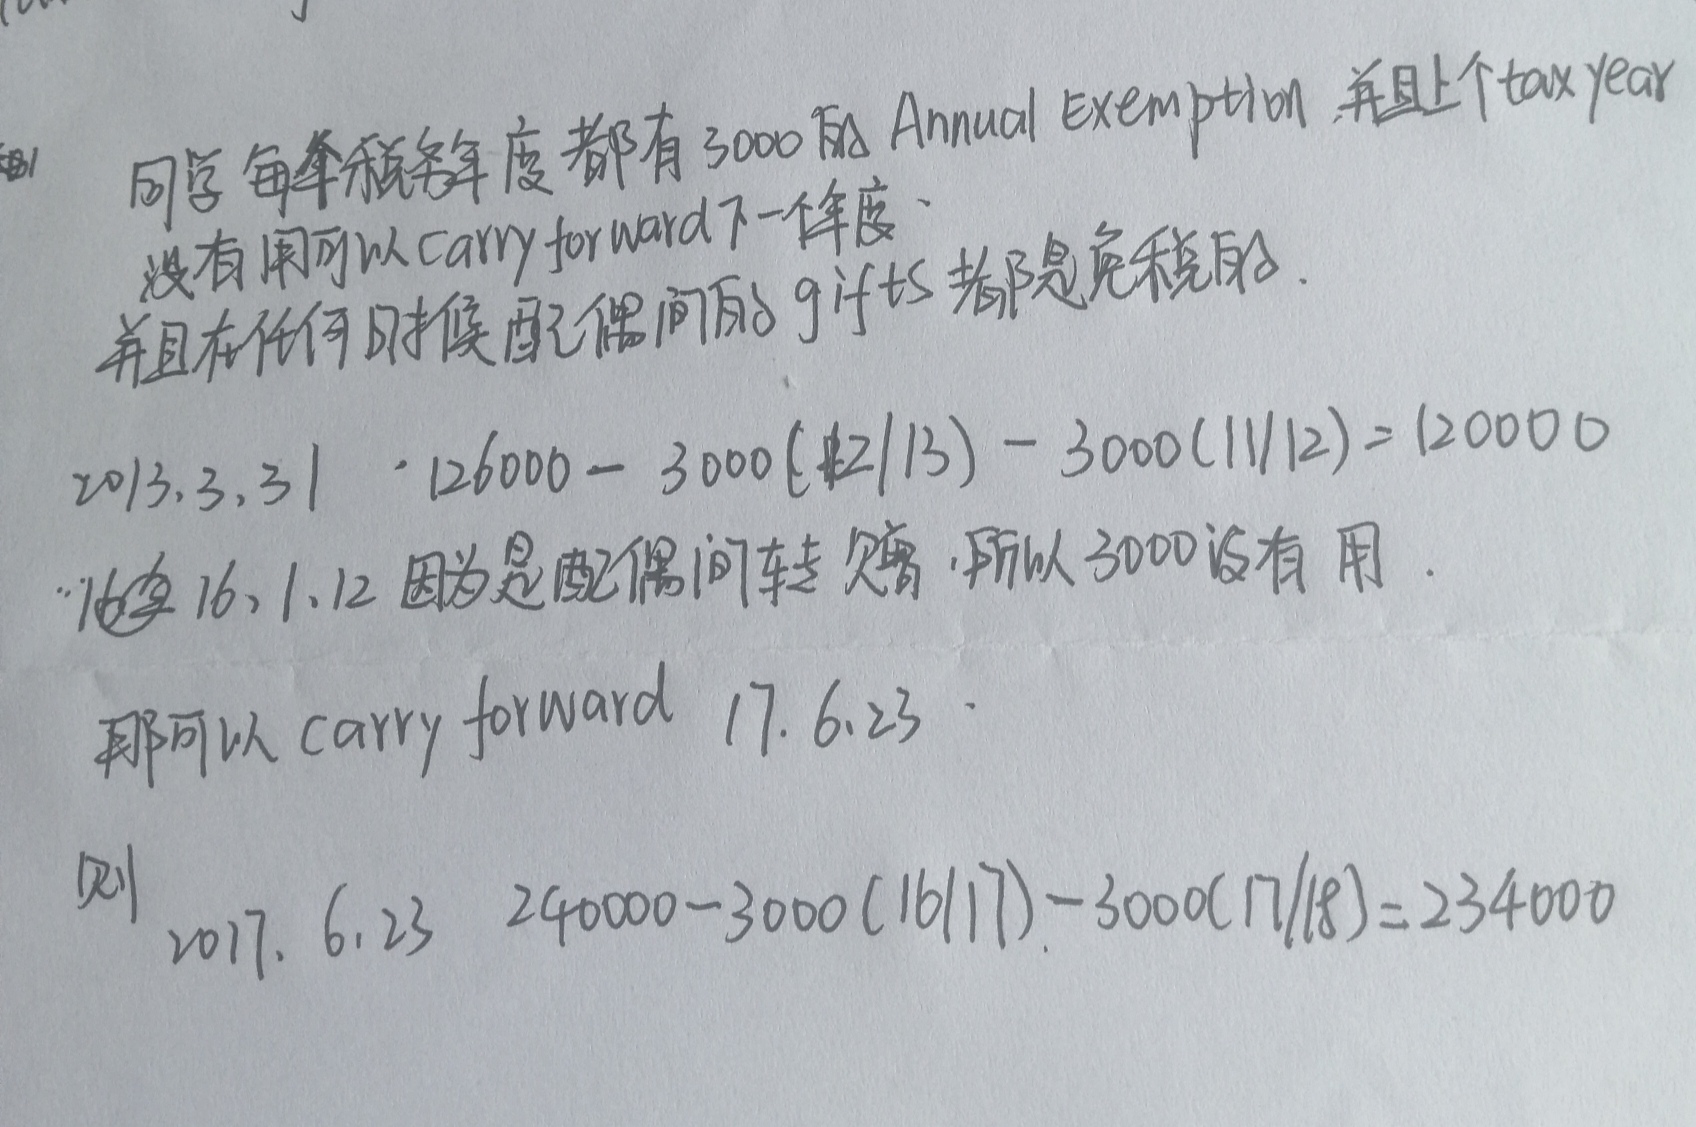 同学每年税务年度都有3000的 Annual Exemption 并且上个tax year
没有用可以carry forward下一个年度.
并且在任何时候配偶间的gifts都是免税的.
2013.3.31 126000-3000(12/13)-3000(11/12)=120000
16.1.12因为是配偶间转赠.所以3000没有用.
那可以carry forward 17.6.23.
则
2017.6.23 240000-3000(16/17)-3000(17/18)=234000